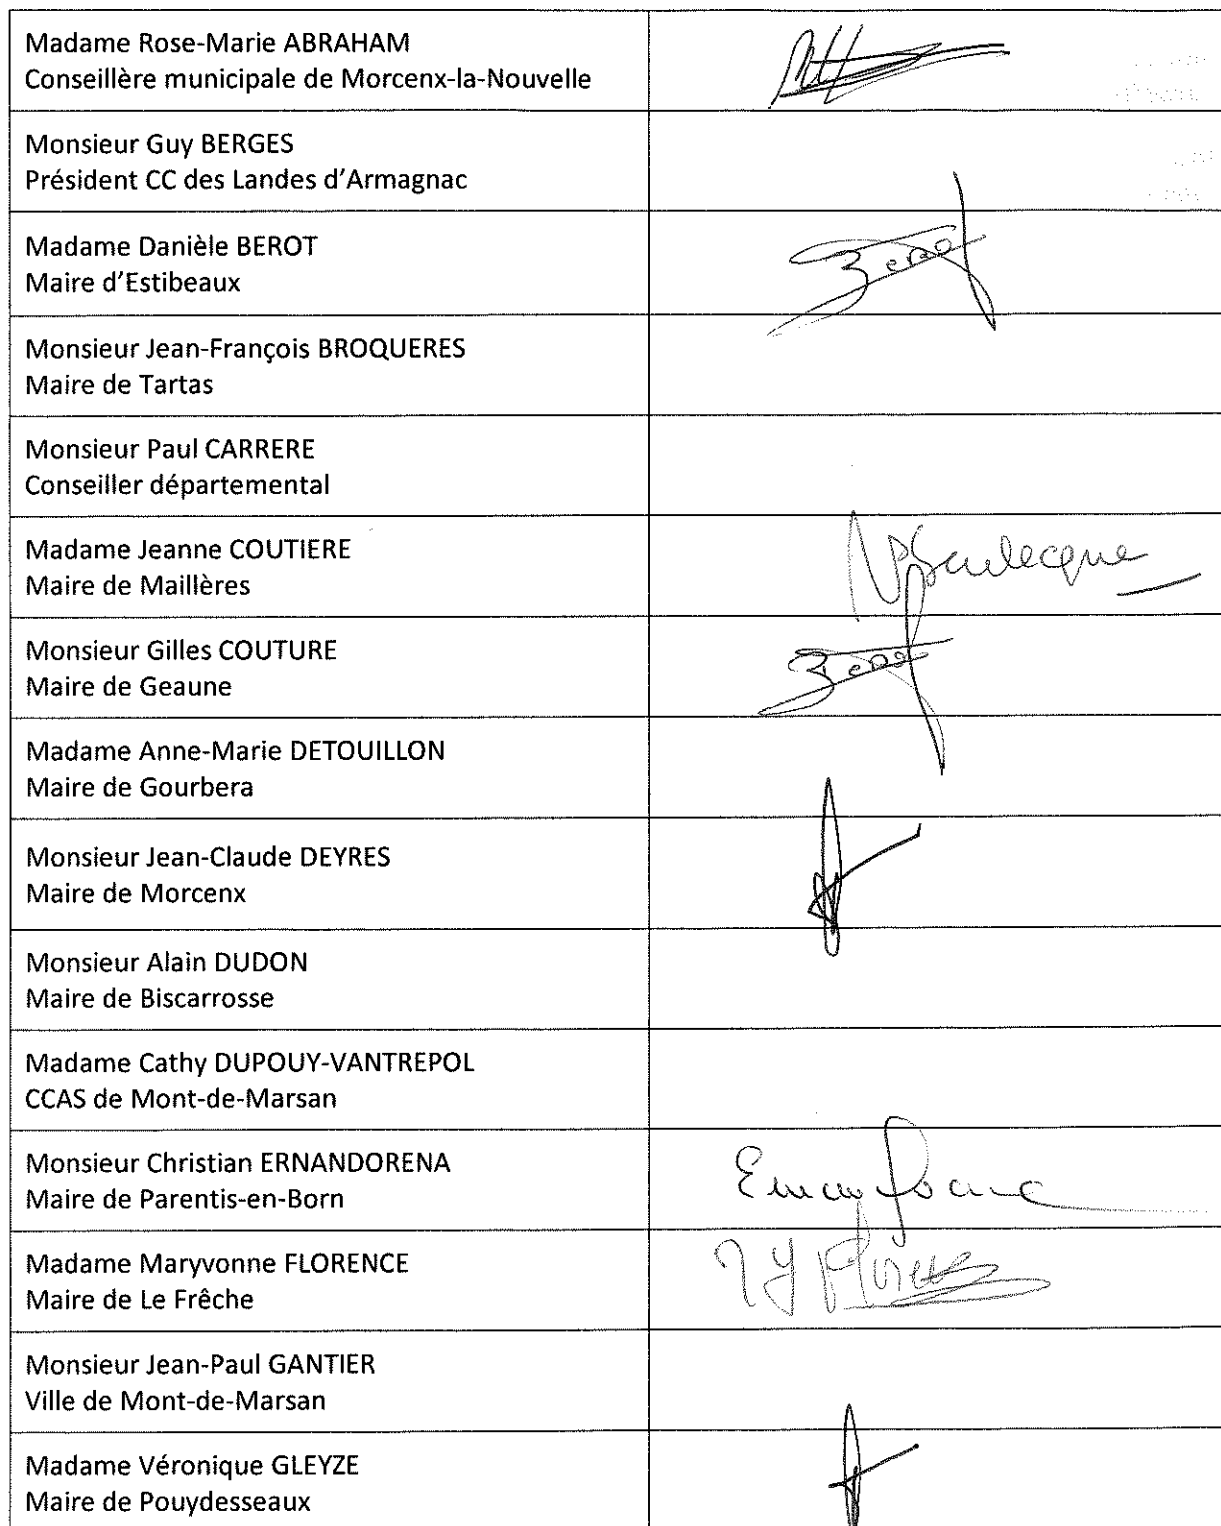 Madame Rose-Marie ABRAHAM
Conseillère municipale de Morcenx-la-Nouvelle
Monsieur Guy BERGES
Président CC des Landes d'Armagnac
Madame Danièle BEROT
Maire d'Estibeaux
Berot
Monsieur Jean-François BROQUERES
Maire de Tartas
Monsieur Paul CARRERE
Conseiller départemental
Madame Jeanne COUTIERE
Maire de Maillères
Monsieur Gilles COUTURE
Maire de Geaune
Berot
Madame Anne-Marie DETOUILLON
Maire de Gourbera
Monsieur Jean-Claude DEYRES
Maire de Morcenx
Monsieur Alain DUDON
Maire de Biscarrosse
Madame Cathy DUPOUY-VANTREPOL
CCAS de Mont-de-Marsan
Monsieur Christian ERNANDORENA
Maire de Parentis-en-Born
Madame Maryvonne FLORENCE
Maire de Le Frêche
Monsieur Jean-Paul GANTIER
Ville de Mont-de-Marsan
Madame Véronique GLEYZE
Maire de Pouydesseaux